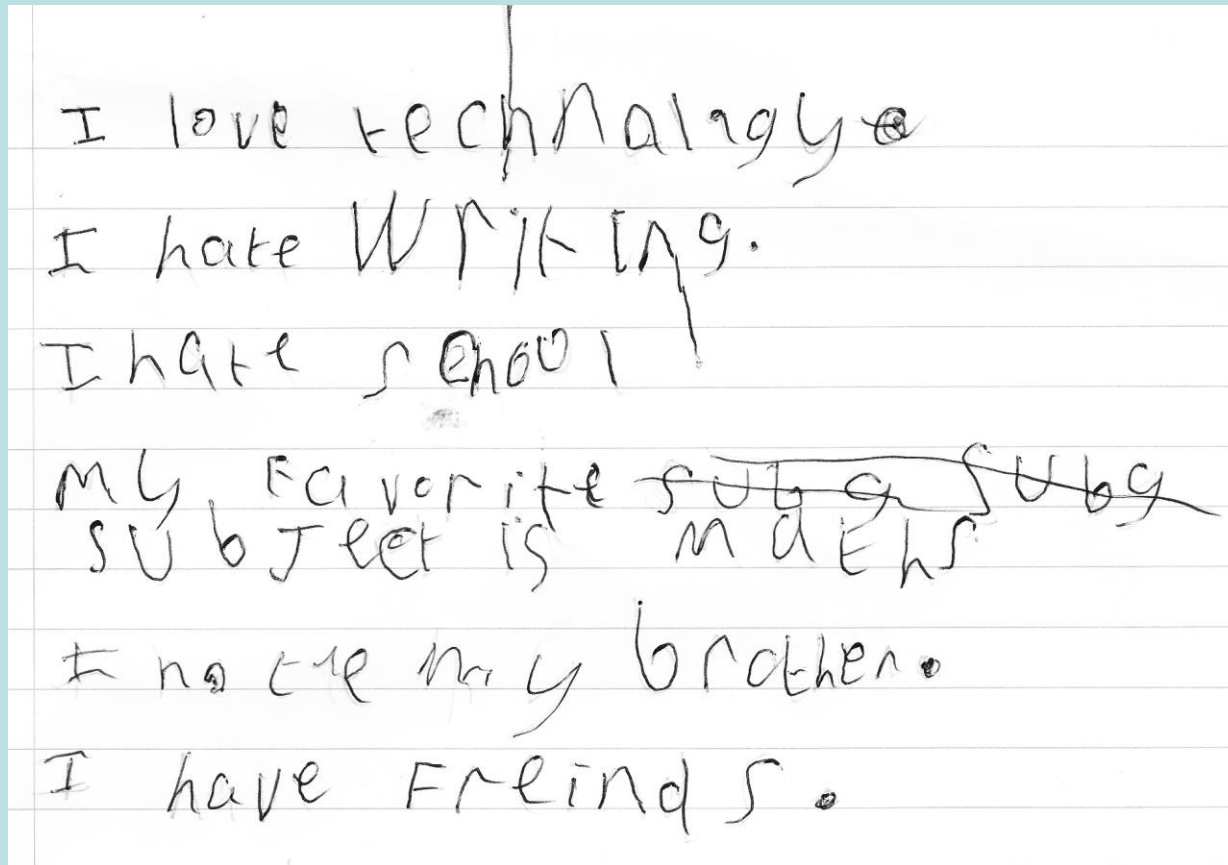 I love technalagy.
I hate Writing.
I hate school
My Favorite
subJect is maths
I hate my brother.
I have Freinds.